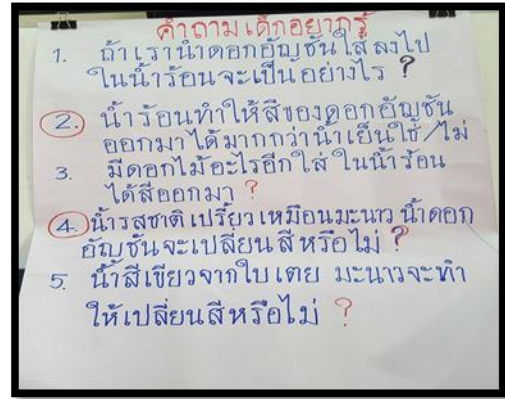 คำถามเด็กอยากรู้
1. ถ้าเรานำดอกอัญชันใส่ลงไป
ในน้ำร้อนจะเป็นอย่างไร ?
2. น้ำร้อนทำให้สีของดอกอัญชัน
ออกมาได้มากกว่าน้ำเย็นใช่/ไม่
3. มีดอกไม้อะไรอีกใส่ในน้ำร้อน
ได้สีออกมา ?
4. น้ำรสชาติเปรี้ยวเหมือนมะนาว น้ำดอก
อัญชันจะเปลี่ยนสีหรือไม่ ?
5. น้ำสีเขียวจากใบเตย มะนาวจะทำ
ให้เปลี่ยนสีหรือไม่ ?